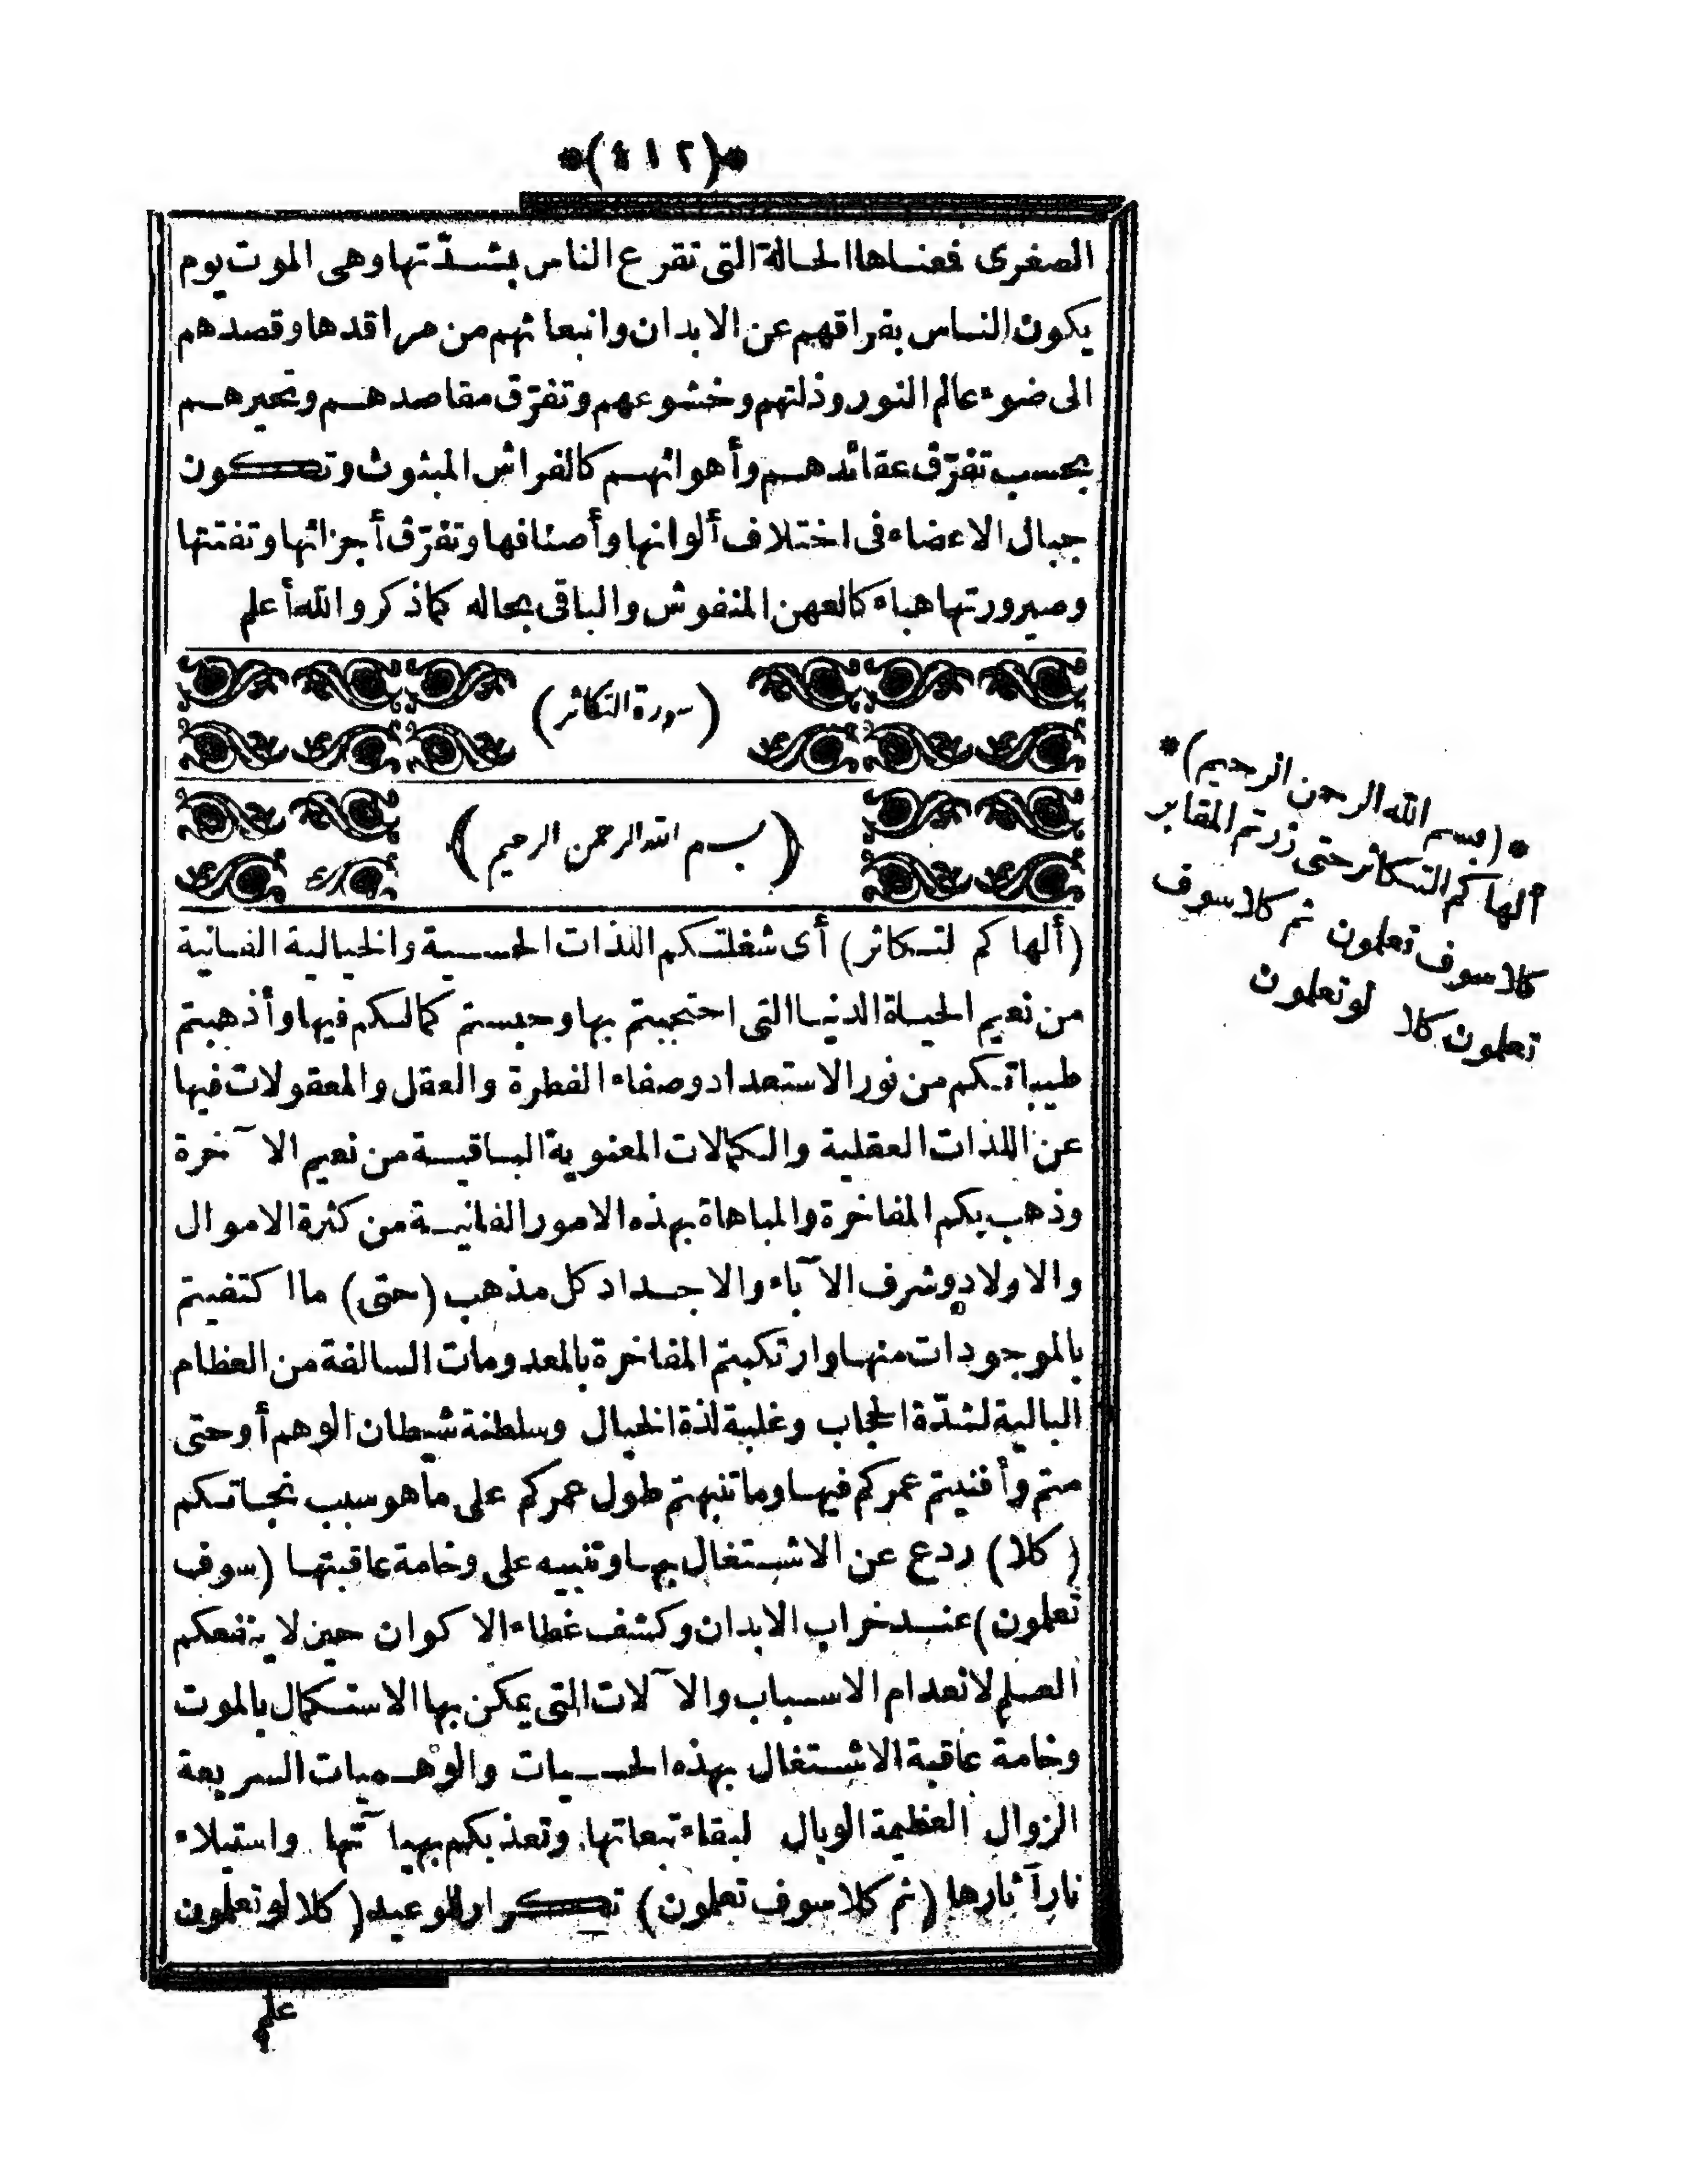 *(٤١٢)*
الصغرى فعناها الحالة التى تقرع الناس بشدّتها وهى الموت يوم
يكون الناس بفراقهم عن الابدان وانبعاثهم من مراقدها وقصدهم
الى ضوء عالم النور وذلتهم وخشوعهم وتفرّق مقاصدهم وتحيرهم
بحسب تفرّق عقائدهم وأهوائهم كالفراش المبثوث وتكون
جبال الاعضاء فى اختلاف ألوانها وأصنافها وتفرّق أجزائها وتفتتها
وصيرورتها هباء كالعهن المنفوش والباقى بحاله كماذكر والله أعلم
(سورة التكاثر)
(بسم الله الرحمن الرحيم)
(ألهاكم لتكاثر) أى شغلتكم اللذات الحسية والخيالية الفانية
من نعيم الحياة الدنيا التى احتجبتم بها وحبستم كمالكم فيها وأذهبتم
طيباتكم من نور الاستعداد وصفاء الفطرة والعقل والمعقولات فيها
عن اللذات العقلية والكمالات المعنوية الباقية من نعيم الآخرة
وذهب بكم المفاخرة والمباهاة بهذه الامور الفانية من كثرة الاموال
والاولاد وشرف الآباء والاجداد كل مذهب (حتى) ما اكتفيتم
بالموجودات منها وارتكبتم المفاخرة بالمعدومات السالفة من العظام
البالية لشدّة الحجاب وغلبة لذة الخيال وسلطنة شيطان الوهم أو حتى
متم وأفنيتم عمركم فيها وما تنبهتم طول عمركم على ما هو سبب نجاتكم
(كلا) ردع عن الاشتغال بها وتنبيه على وخامة عاقبتها (سوف
تعلمون) عند خراب الابدان وكشف غطاء الاكوان حين لا ينفعكم
العلم لانعدام الاسباب والآلات التى يمكن بها الاستكمال بالموت
وخامة عاقبة الاشتغال بهذه الحسيات والوهميات السريعة
الزوال العظيمة الوبال لبقاء تبعاتها وتعذبكم بهيآتها واستيلاء
نار آثارها (ثم كلا سوف تعلمون) تكرار للوعيد (كلا لو تعلمون
علم
*(بسم الله الرحمن الرحيم)*
ألهاكم التكاثر حتى زرتم المقابر
كلا سوف تعلمون ثم كلا سوف
تعلمون كلا لو تعلمون